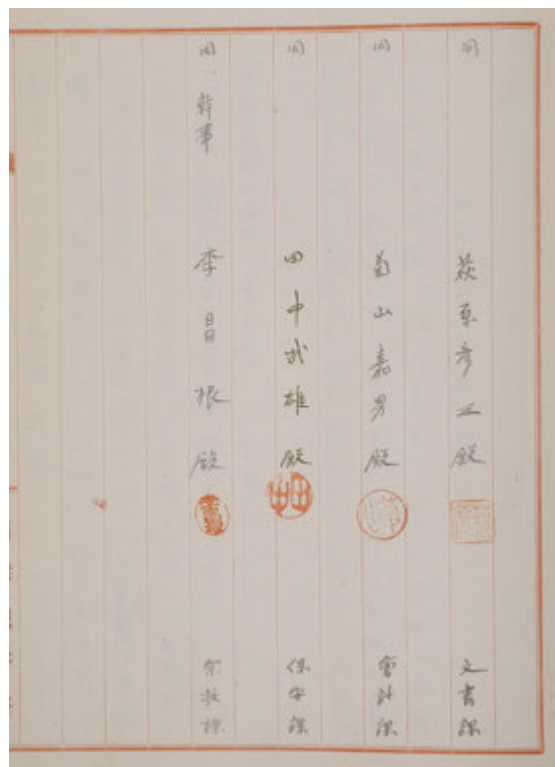 同 萩原彦三殿 文書課
同 菊山嘉男殿 會計課
同 田中武雄殿 保安課
同 幹事 李昌根殿 宗教課